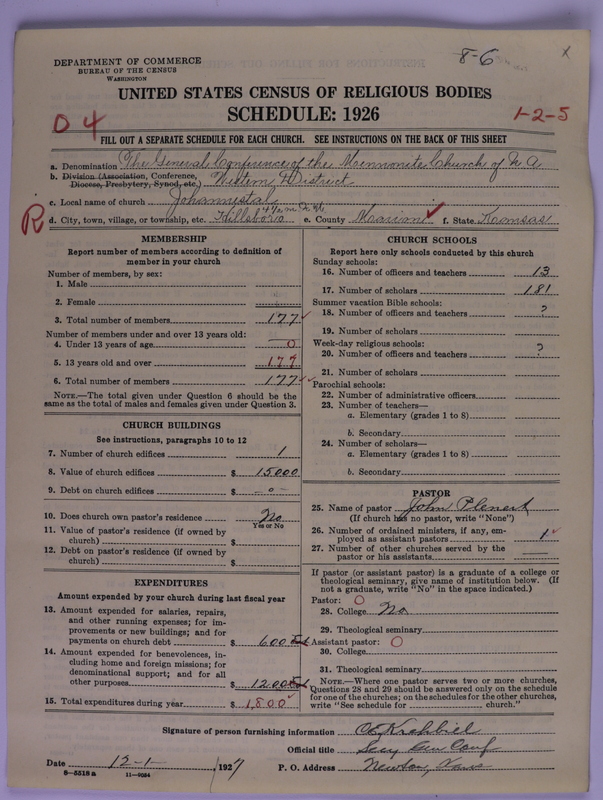 DEPARTMENT OF COMMERCE
BUREAU OF THE CENSUS
WASHINGTON
8-6
x
UNITED STATES CENSUS OF RELIGIOUS BODIES
SCHEDULE: 1926
04
1-2-5
FILL OUT A SEPARATE SCHEDULE FOR EACH CHURCH. SEE INSTRUCTIONS ON THE BACK OF THIS SHEET
a. Denomination The General Conference of the Mennonite Church of N A
b. Division (Association, Conference, Diocese, Presbytery, Synod, etc.) Western District
c. Local name of church Johannestal
R
d. City, town, village, or township, etc. Hillsboro e. County Marion ✓ f. State Kansas
MEMBERSHIP
Report number of members according to definition of
member in your church
Number of members, by sex:
1. Male
2. Female
3. Total number of members 177 ✓
Number of members under and over 13 years old:
4. Under 13 years of age 0
5. 13 years old and over 177
6. Total number of members 177 ✓
NOTE.—The total given under Question 6 should be the
same as the total of males and females given under Question 3.
CHURCH BUILDINGS
See instructions, paragraphs 10 to 12
7. Number of church edifices 1
8. Value of church edifices $ 15000
9. Debt on church edifices $ -0-
10. Does church own pastor's residence No
Yes or No
11. Value of pastor's residence (if owned by
church) $
12. Debt on pastor's residence (if owned by
church) $
EXPENDITURES
Amount expended by your church during last fiscal year
13. Amount expended for salaries, repairs,
and other running expenses; for im-
provements or new buildings; and for
payments on church debt $ 600
14. Amount expended for benevolences, in-
cluding home and foreign missions; for
denominational support; and for all
other purposes $ 1200
15. Total expenditures during year $ 1,800 ✓
CHURCH SCHOOLS
Report here only schools conducted by this church
Sunday schools:
16. Number of officers and teachers 13
17. Number of scholars 181
Summer vacation Bible schools:
18. Number of officers and teachers ?
19. Number of scholars
Week-day religious schools:
20. Number of officers and teachers ?
21. Number of scholars
Parochial schools:
22. Number of administrative officers
23. Number of teachers—
a. Elementary (grades 1 to 8)
b. Secondary
24. Number of scholars—
a. Elementary (grades 1 to 8)
b. Secondary
PASTOR
25. Name of pastor John Plenert
(If church has no pastor, write "None")
26. Number of ordained ministers, if any, em-
ployed as assistant pastors 1 ✓
27. Number of other churches served by the
pastor or his assistants
If pastor (or assistant pastor) is a graduate of a college or
theological seminary, give name of institution below. (If
not a graduate, write "No" in the space indicated.)
Pastor: O
28. College No
29. Theological seminary
Assistant pastor: O
30. College
31. Theological seminary
NOTE.—Where one pastor serves two or more churches,
Questions 28 and 29 should be answered only on the schedule
for one of the churches; on the schedules for the other churches,
write "See schedule for church."
Signature of person furnishing information C E Krehbiel
Official title Secy Gen Conf
Date 12-1- 1927 P. O. Address Newton, Kans
8—5518 a 11—9034